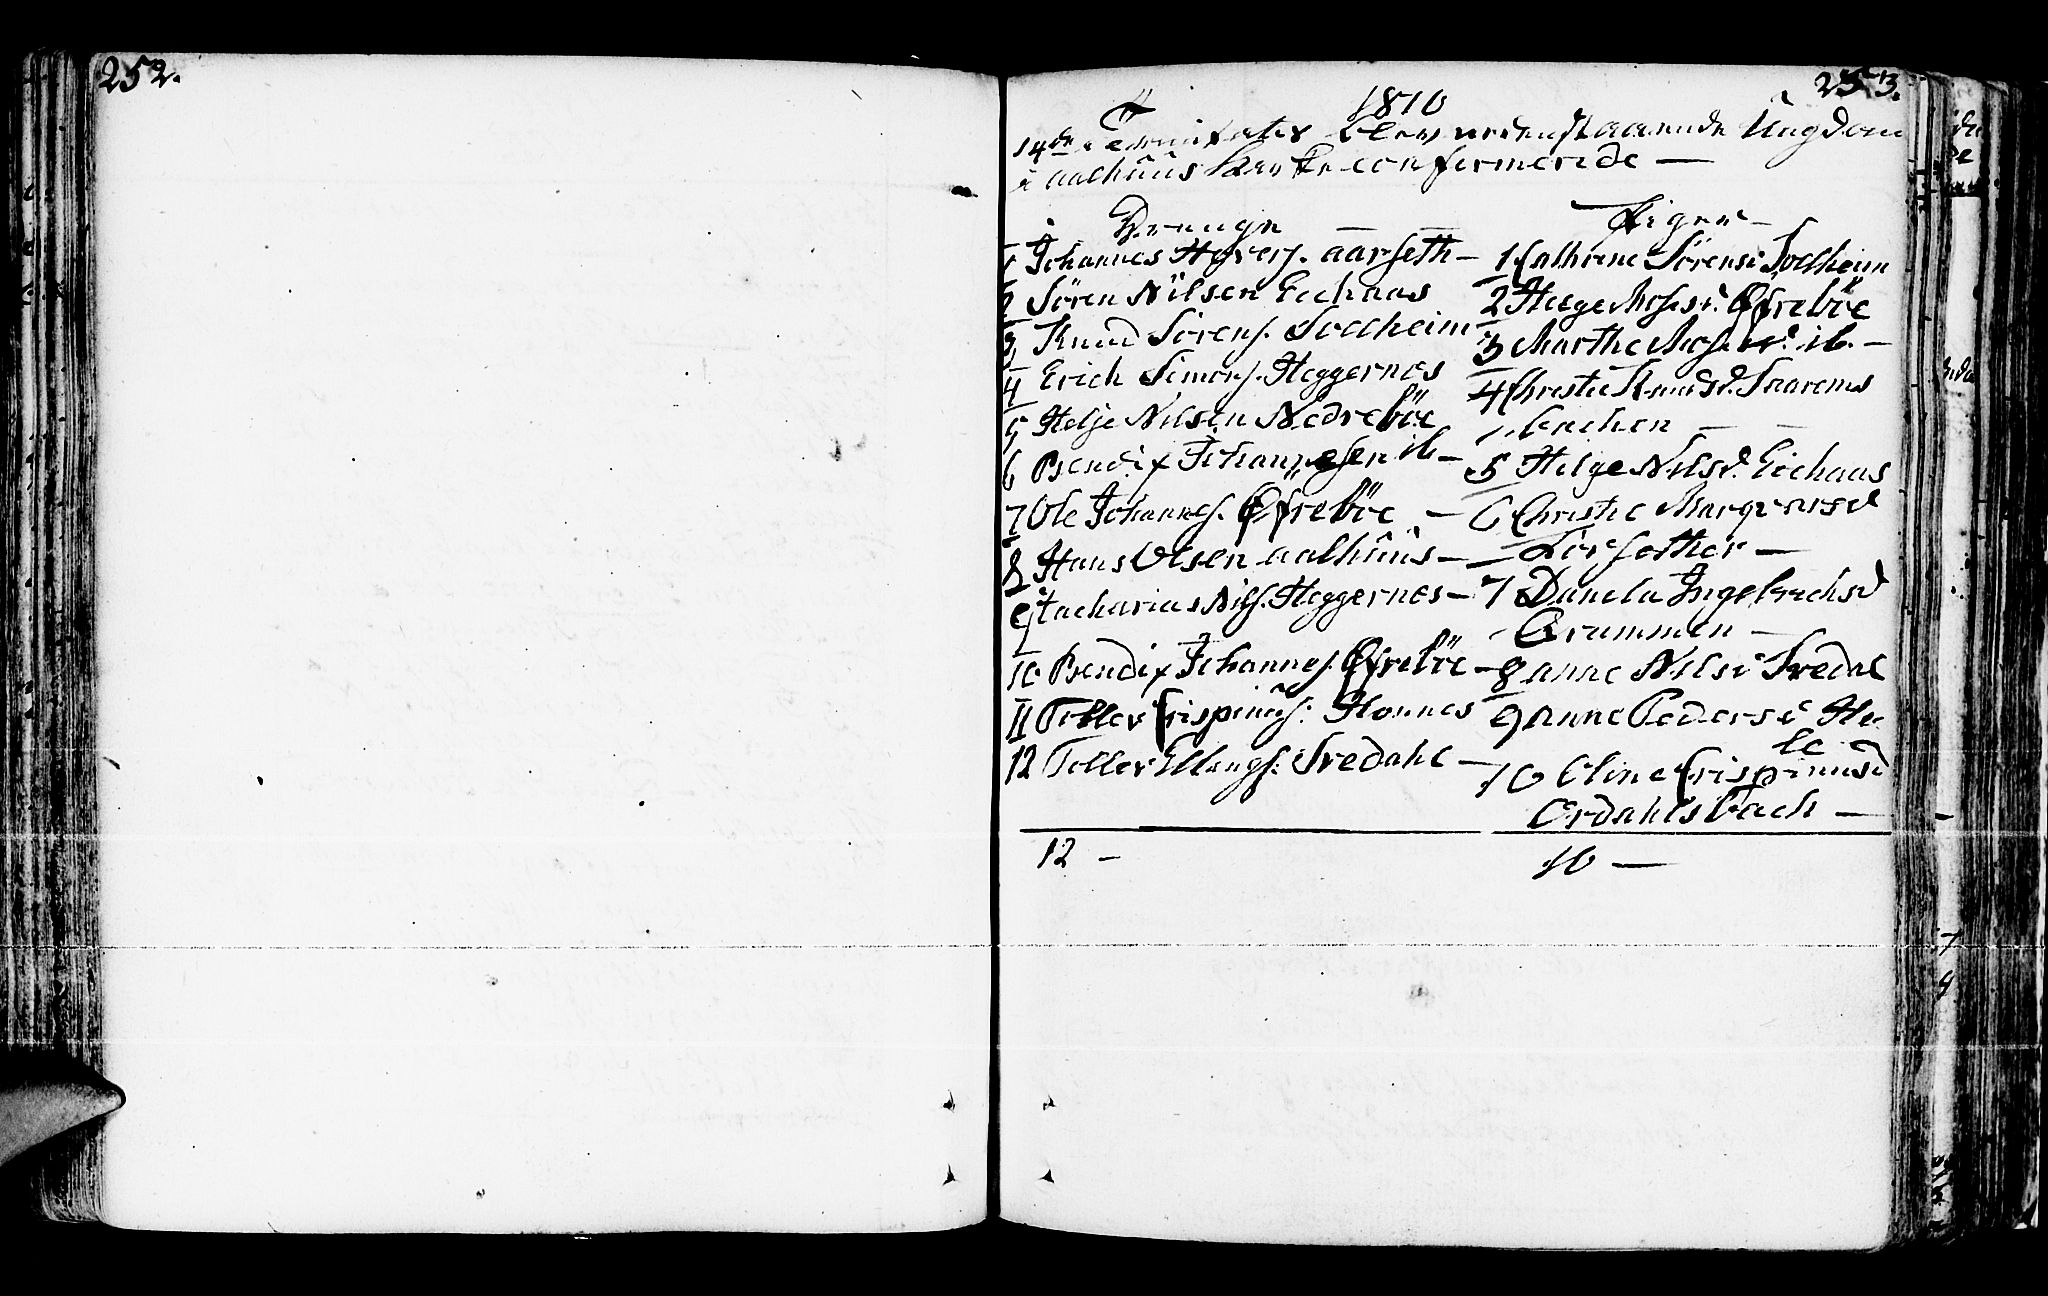 252.
253.
1810
14de Trinitatis blev nedenstaaende Ungdom
i aalhûûs Kirke confirmerede —
Drenge — —
1 Johannes Hoversſ. aarſeth —
2 Sören Nilsen Eichaas
3 Knud Sörenſ. Solheim
4 Erich Simonſ. Heggernes
5 Helje Nilsen Nedreböe
6 Bendix Johanneſen ib —
7 Ole Johanneſ. Öfreböe —
8 Hans Olsen aalhûûs —
9 Zacharias Nilſ. Heggernes —
10 Bendix Johanneſ. Öfreböe —
11 Toller Crispinûſ: Honnes
12 Toller Ellingſ: Svedahl —
12 —
Piger —
1 Cathrine Sörensd Solheim
2 Helge Mosesd. Öfreböe
3 Marthe Moſesd. ib. —
4 Christie Knudsd. Snarems
bachen — —
5 Helge Nilsd. Eichaas
6 Christie Marqvarsd
Förſether —
7 Danela Ingebrechsd
Grummen —
8 anne Nilsd Svedal
9 anne Pedersd He-
le
10 Oline Crispinusd
Ordahlsbach —
10 —